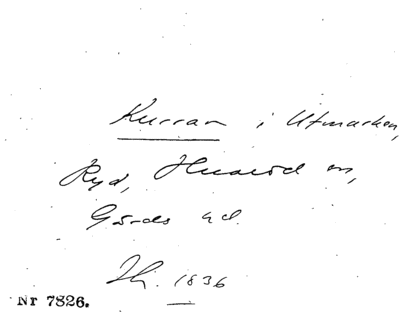 Kurran i Utmarken,
Ryd, Huaröd sn,
Gärds hd.
Th. 1836
Nr 7826.